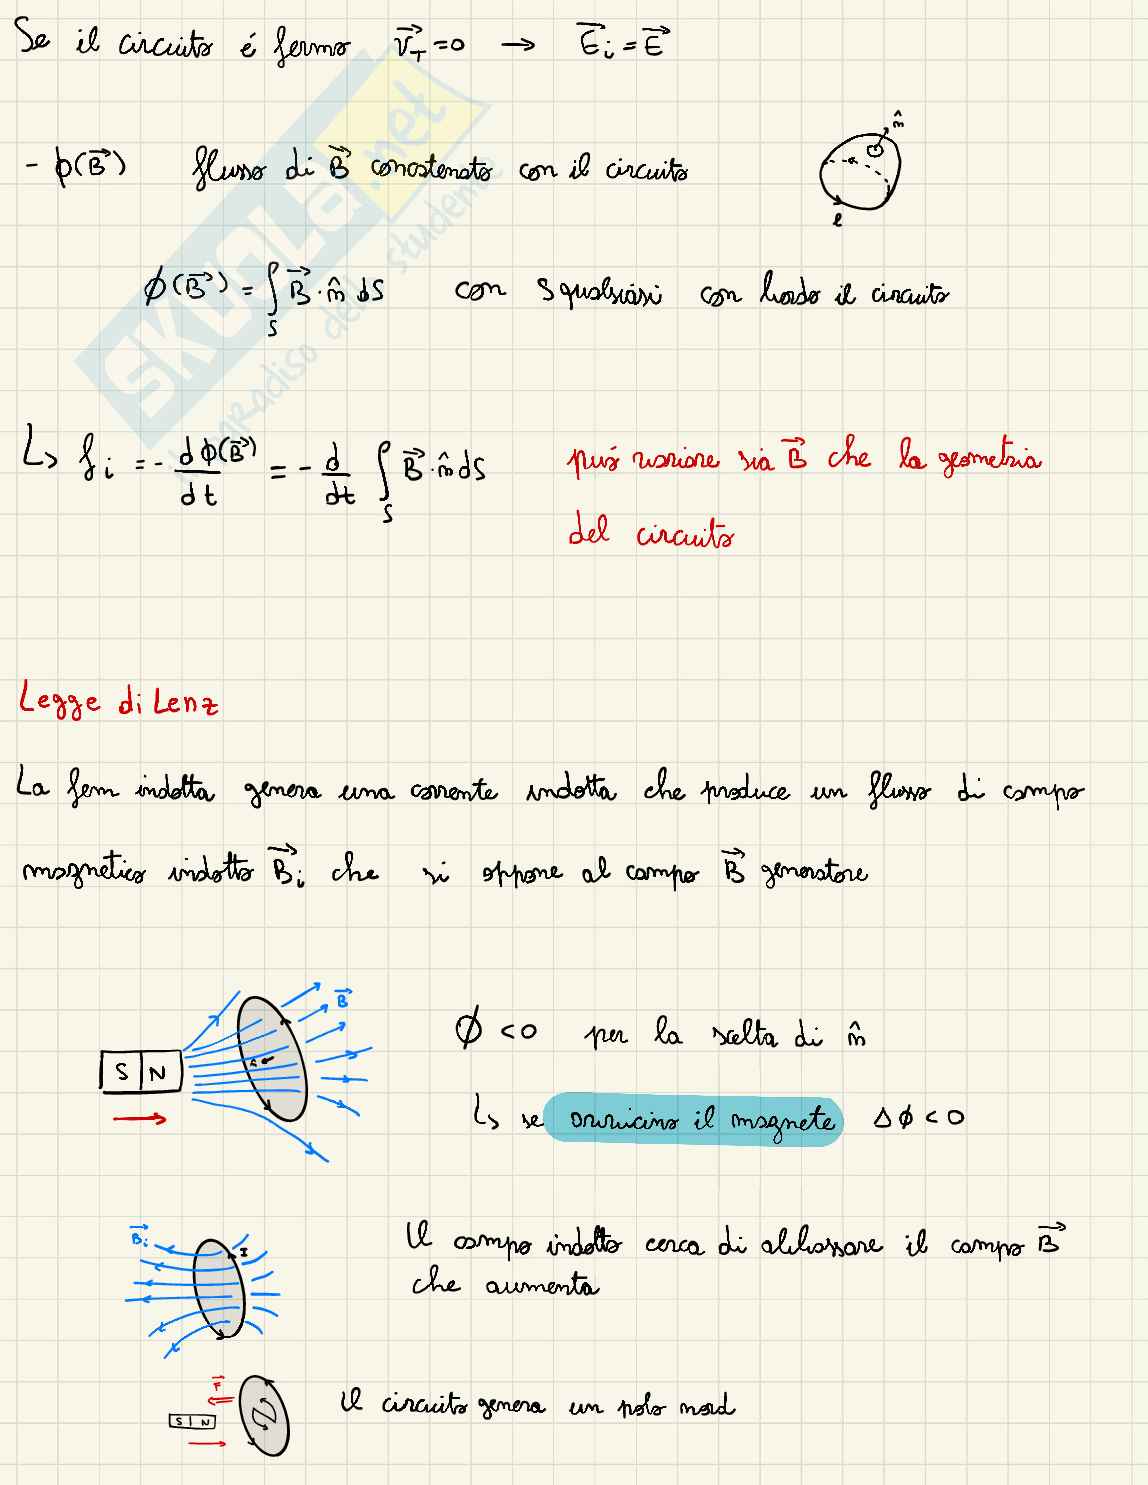 Se il circuito é fermo v⃗_T = 0 → E⃗_i = E⃗
- ϕ(B⃗) flusso di B⃗ concatenato con il circuito
n̂
l
ϕ(B⃗) = ∫_S B⃗ · n̂ dS con S qualsiasi con bordo il circuito
↳ f_i = - dϕ(B⃗)/dt = - d/dt ∫_S B⃗ · n̂ dS può variare sia B⃗ che la geometria
del circuito
Legge di Lenz
La fem indotta genera una corrente indotta che produce un flusso di campo
magnetico indotto B⃗_i che si oppone al campo B⃗ generatore
B⃗
S N
ϕ < 0 per la scelta di n̂
↳ se avvicino il magnete Δϕ < 0
B⃗_i
I
Il campo indotto cerca di abbassare il campo B⃗
che aumenta
F⃗
S N
Il circuito genera un polo nord
SKUOLA.net
paradiso dello studente